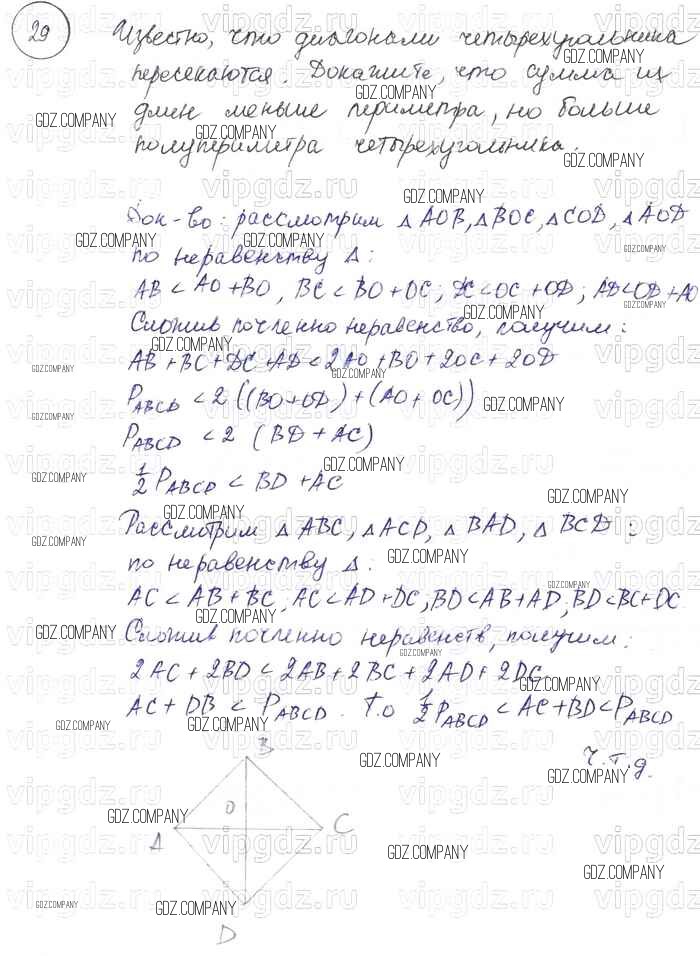 29
Известно, что диагонали четырехугольника
пересекаются. Докажите, что сумма их
длин меньше периметра, но больше
полупериметра четырехугольника.
Док-во: рассмотрим △AOB, △BOC, △COD, △AOD
по неравенству △:
AB < AO + BO, BC < BO + OC; DC < OC + OD; AD < OD + AO
Сложив почленно неравенство, получим:
AB + BC + DC + AD < 2AO + BO + 2OC + 2OD
P_ABCD < 2 ((BO + OD) + (AO + OC))
P_ABCD < 2 (BD + AC)
1/2 P_ABCD < BD + AC
Рассмотрим △ABC, △ACD, △BAD, △BCD:
по неравенству △:
AC < AB + BC; AC < AD + DC; BD < AB + AD; BD < BC + DC
Сложив почленно неравенств, получим:
2AC + 2BD < 2AB + 2BC + 2AD + 2DC
AC + DB < P_ABCD. Т.о 1/2 P_ABCD < AC + BD < P_ABCD
ч.т.д.
B
O
A
C
D
GDZ.COMPANY
vipgdz.ru